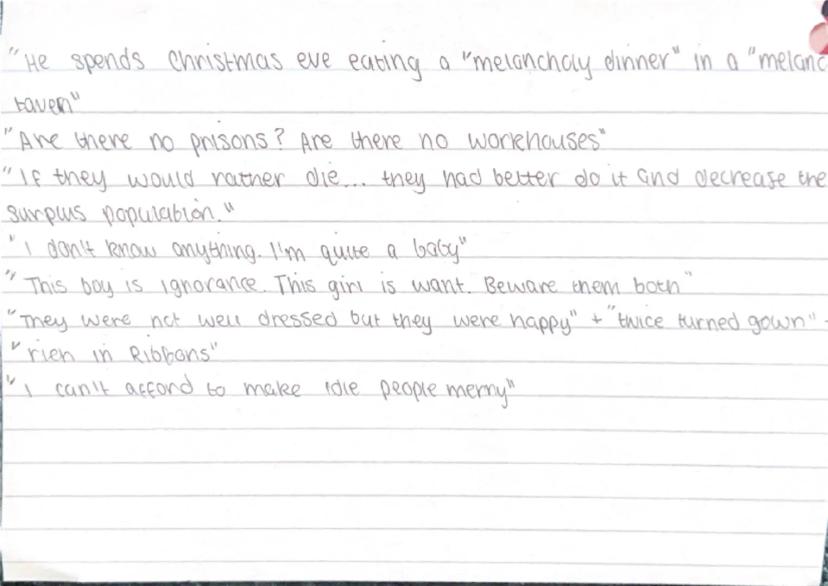 "He spends Christmas eve eating a "melancholy dinner" in a "melanc
taven"
"Are there no prisons? Are there no workhouses"
"If they would rather die... they had better do it and decrease the
surplus population."
"I don't know anything. I'm quite a baby"
"This boy is ignorance. This girl is want. Beware them both"
"They were not well dressed but they were happy" + "twice turned gown" -
"rich in Ribbons"
"I can't afford to make idle people merry"